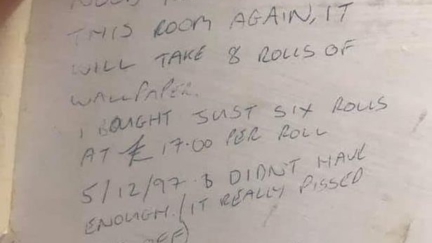 THIS ROOM AGAIN, IT
WILL TAKE 8 ROLLS OF
WALLPAPER.
I BOUGHT JUST SIX ROLLS
AT £17.00 PER ROLL
5/12/97 & DIDN'T HAVE
ENOUGH. (IT REALLY PISSED